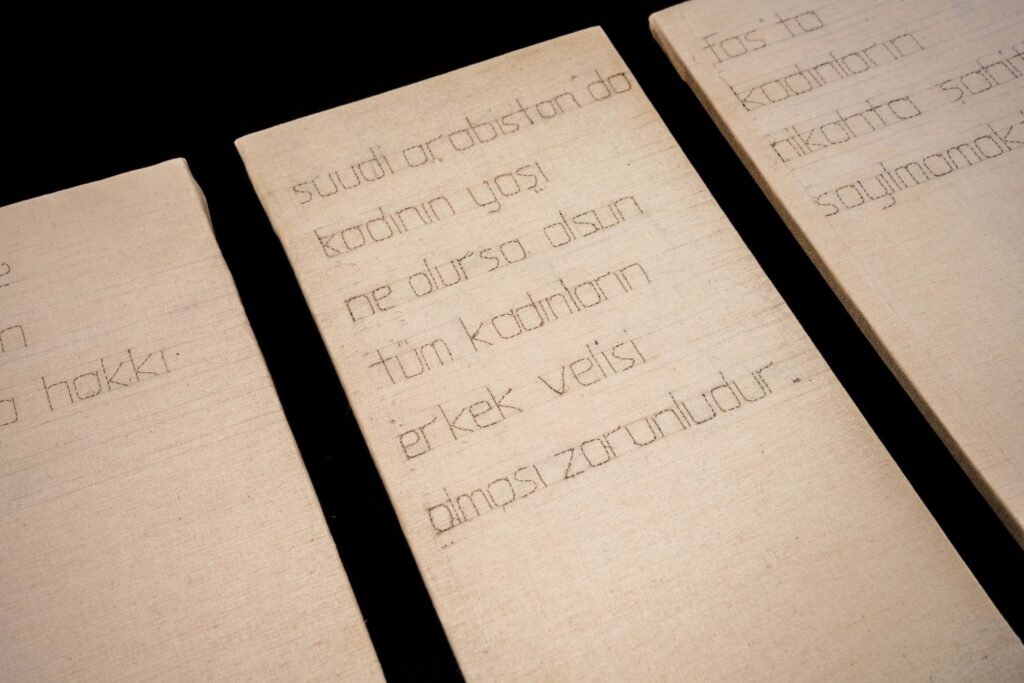 hakkı.
suudi arabistan'da
kadının yaşı
ne olursa olsun
tüm kadınların
erkek velisi
olması zorunludur.
fas'ta
kadınların
nikahta
sayılmamak